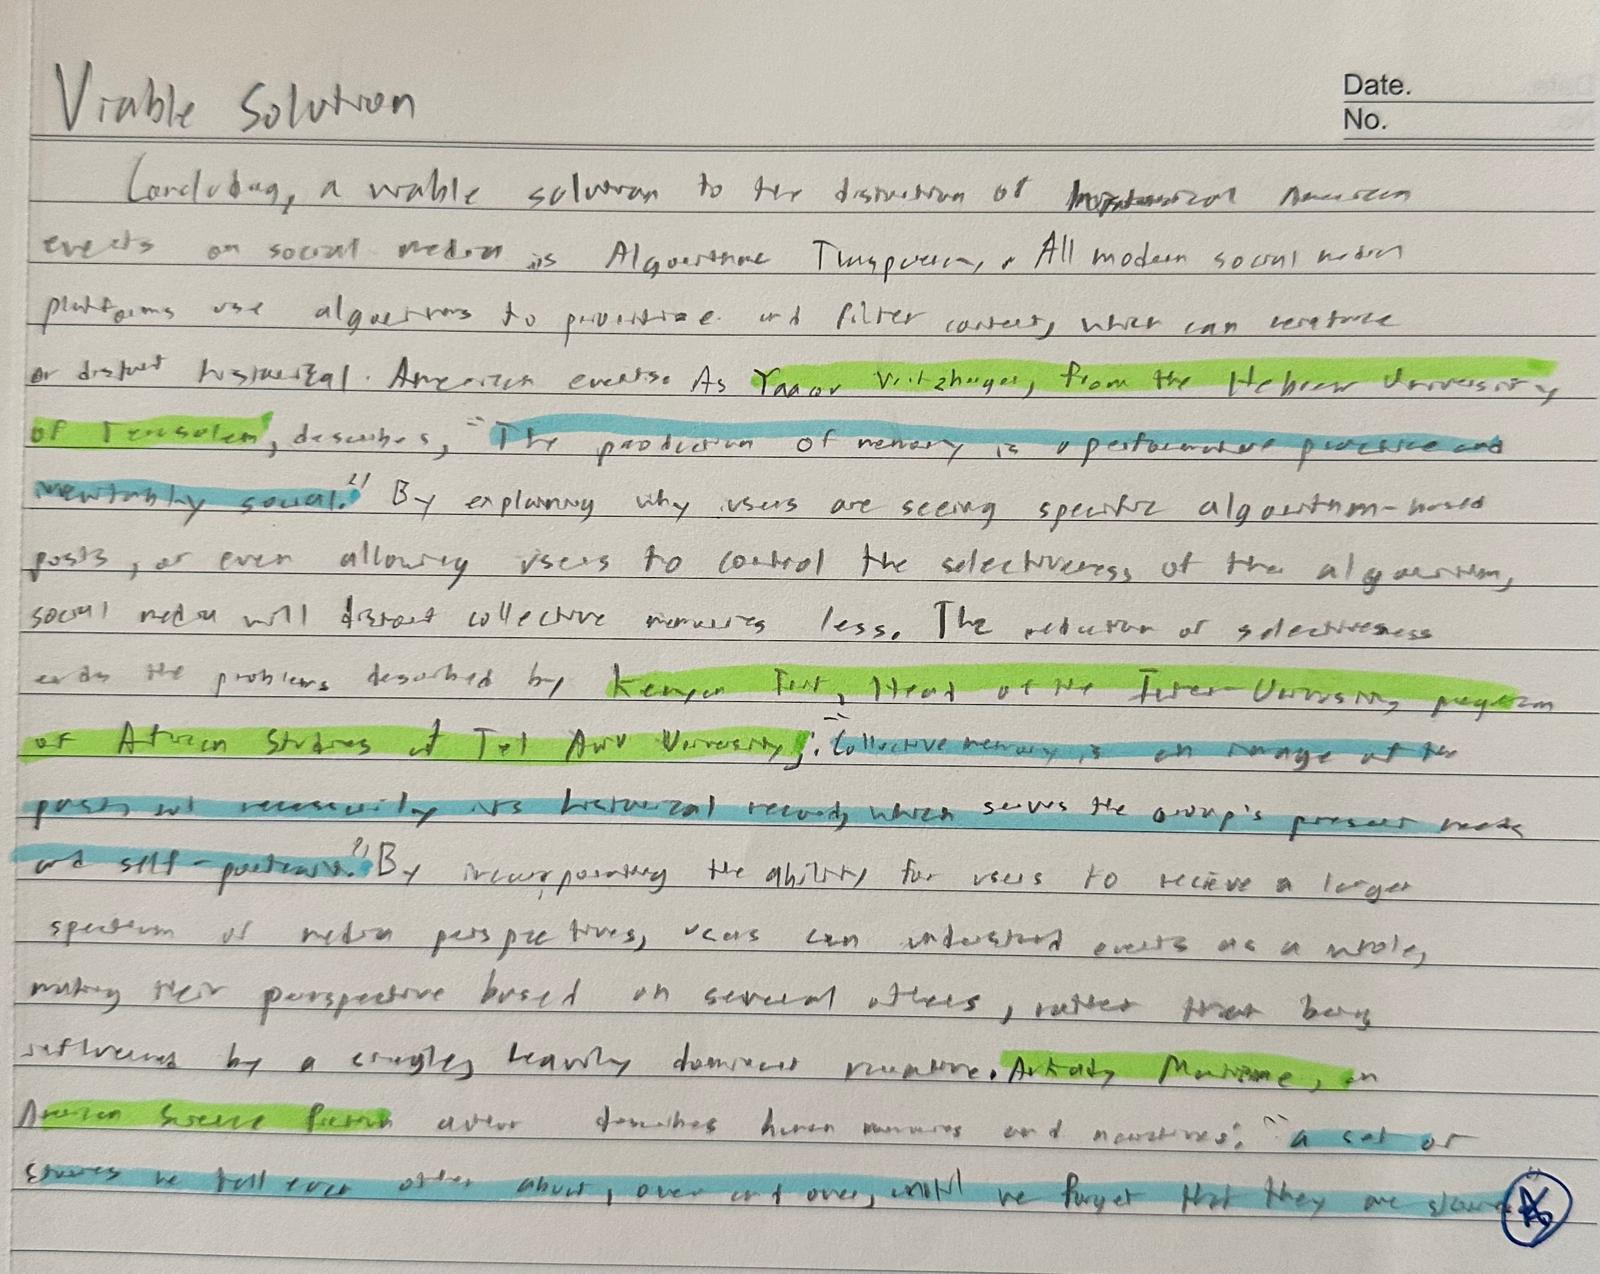 Viable Solution
Date.
No.
Concluding, a viable solution to the distortion of historical American
events on social media is Algorithmic Transparency. All modern social media
platforms use algorithms to prioritize and filter content, which can reinforce
or distort historical American events. As Vaaov Vritzhager, from the Hebrew University
of Jerusalem, describes, "The production of memory is a performative practice and
inevitably social." By explaining why users are seeing specific algorithm-based
posts, or even allowing users to control the selectiveness of the algorithm,
social media will distort collective memories less. The reduction of selectiveness
ends the problems described by Kenyan Tirt, Head of the Inter-University program
of African Studies at Tel Aviv University: "Collective memory is an image of the
past, not necessarily its historical record, which serves the group's present needs
and self-portrait." By incorporating the ability for users to recieve a larger
spectrum of media perspectives, users can understand events as a whole,
making their perspective based on several others, rather than being
influenced by a single, heavily dominant narrative. Arkady Martine, an
American Science Fiction author describes human memories and narratives: "a set of
stories we tell each other about, over and over, until we forget that they are stories"